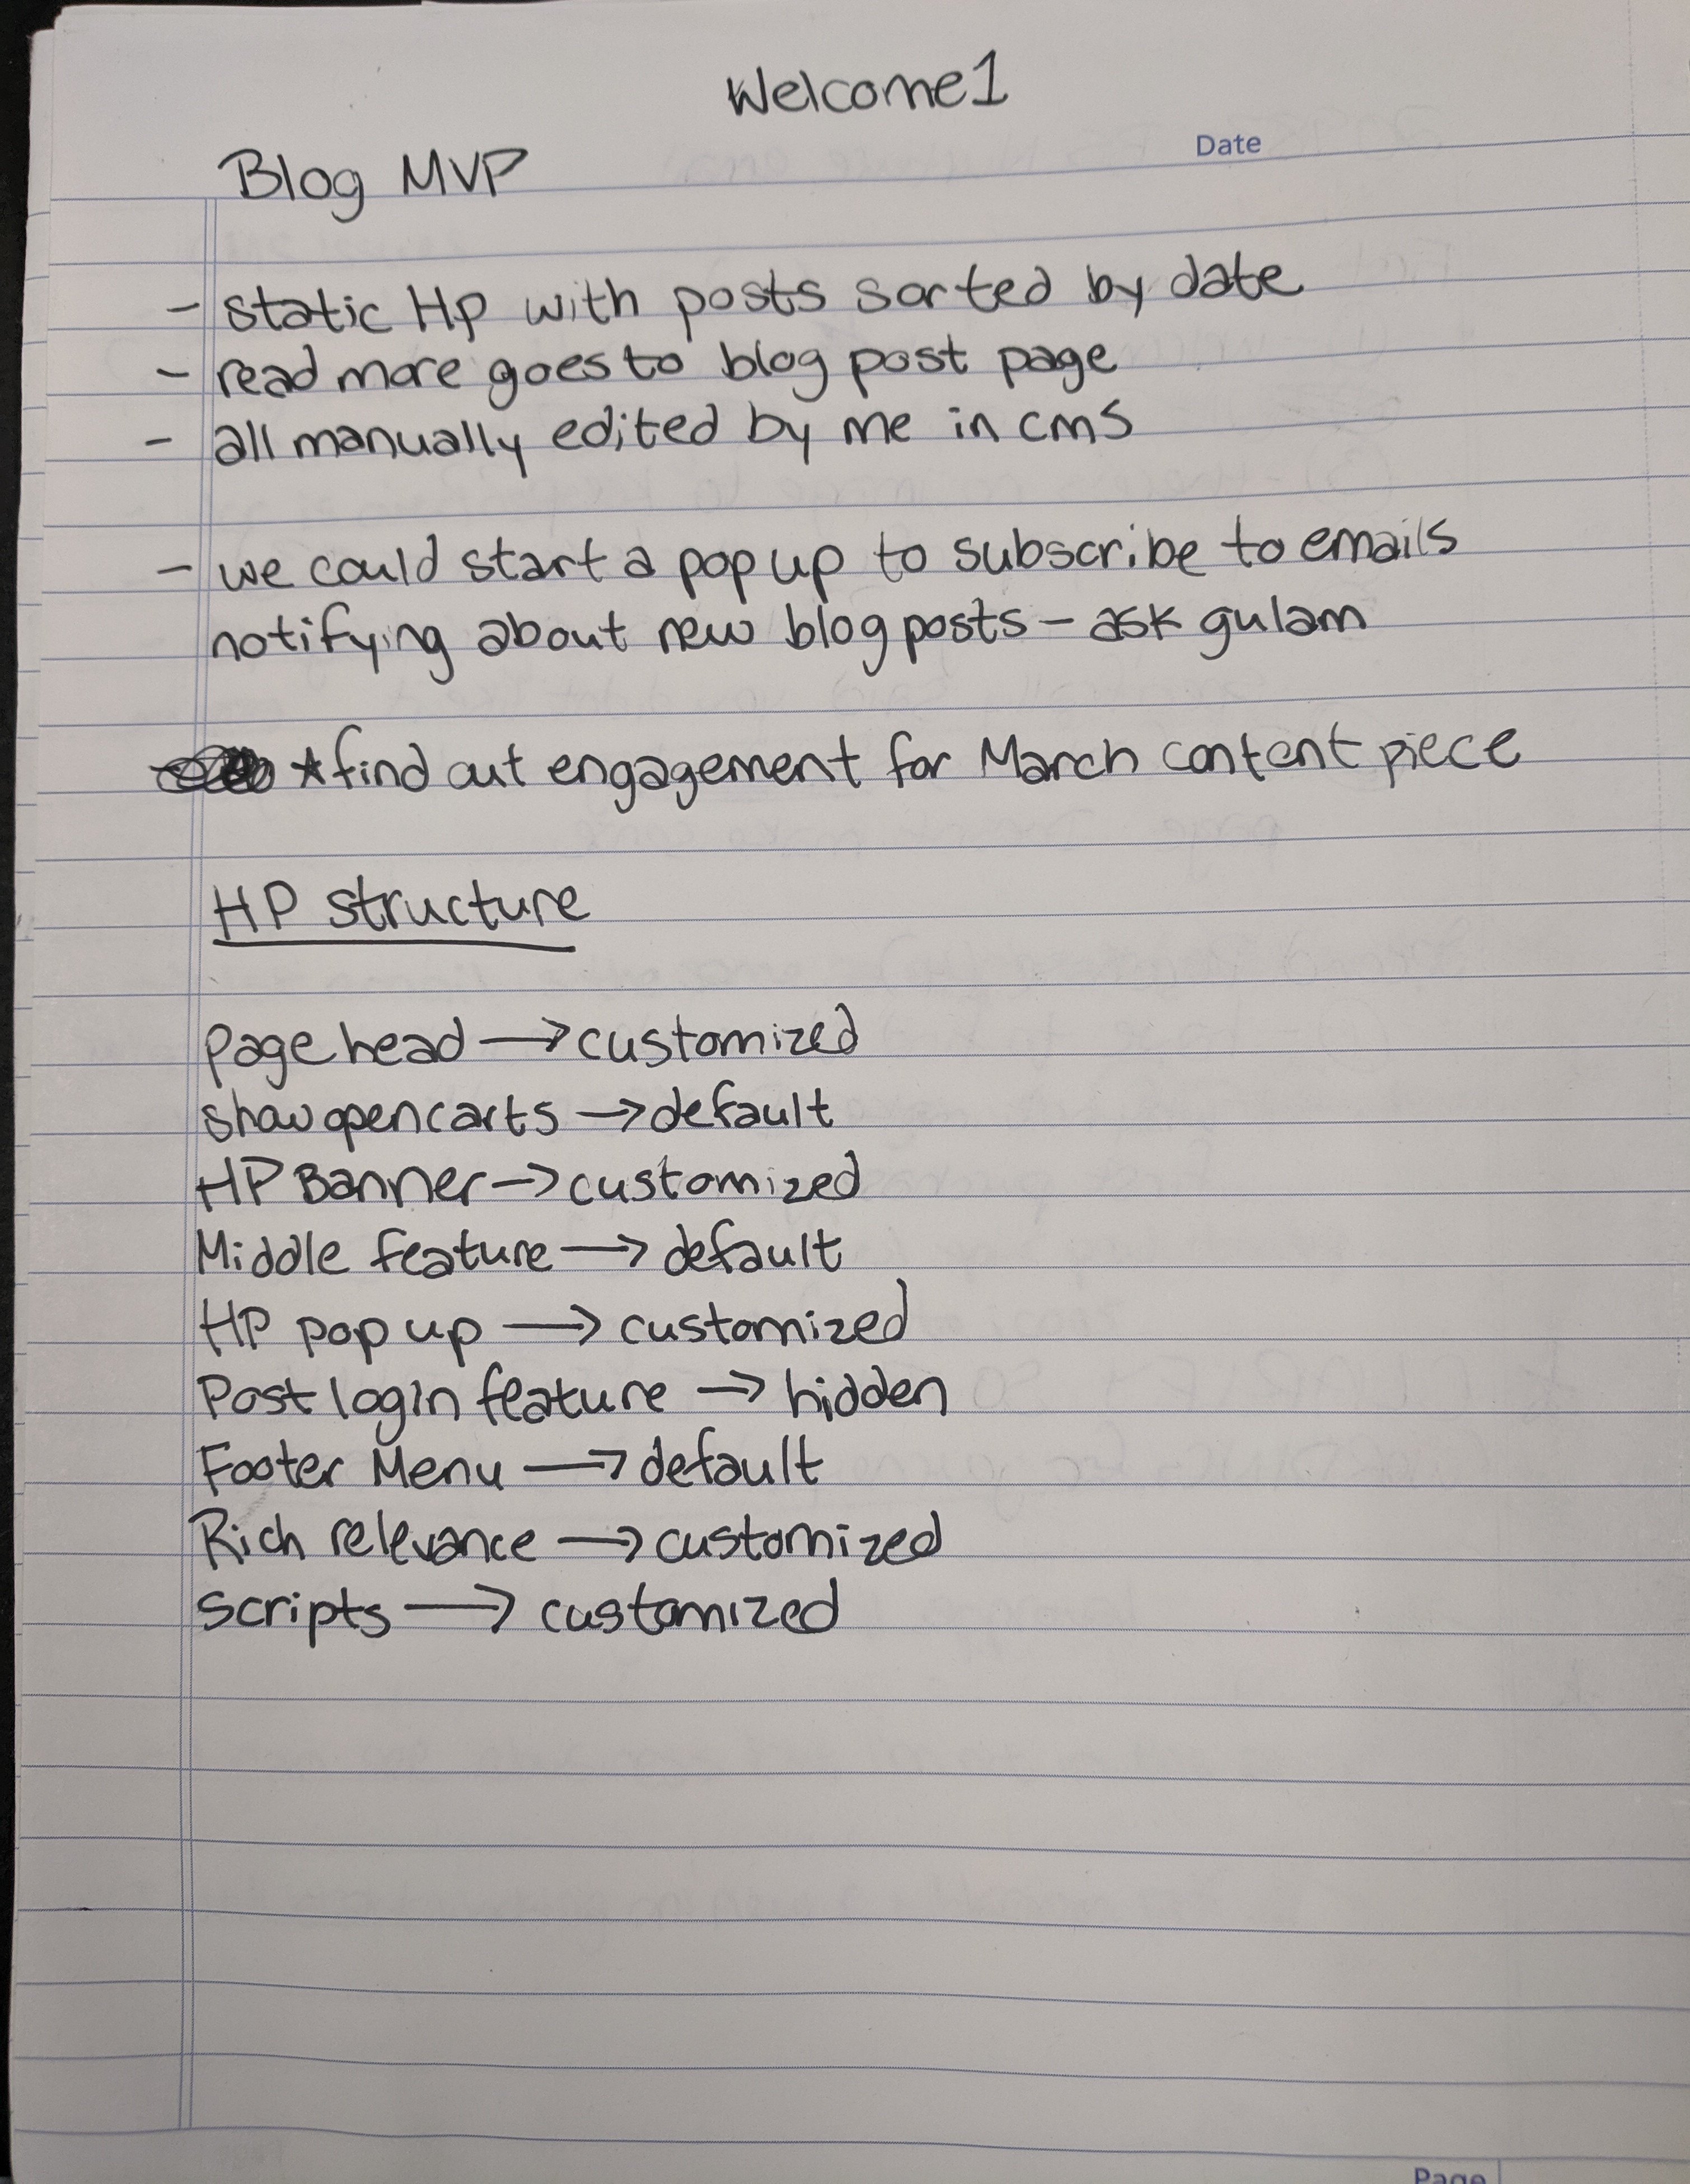 Welcome1
Date
Blog MVP
- static Hp with posts sorted by date
- read more goes to blog post page
- all manually edited by me in cms
- we could start a pop up to subscribe to emails
notifying about new blog posts - ask gulam
*find out engagement for March content piece
HP structure
Page head → customized
show open carts → default
HP Banner → customized
Middle feature → default
HP pop up → customized
Post login feature → hidden
Footer Menu → default
Rich relevance → customized
Scripts → customized
Page